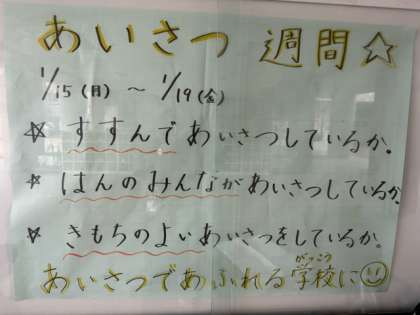 あいさつ 週間☆
1/15(月) ~ 1/19(金)
☆ すすんであいさつしているか。
☆ はんのみんながあいさつしているか。
☆ きもちのよいあいさつをしているか。
がっこう
あいさつであふれる学校に☺